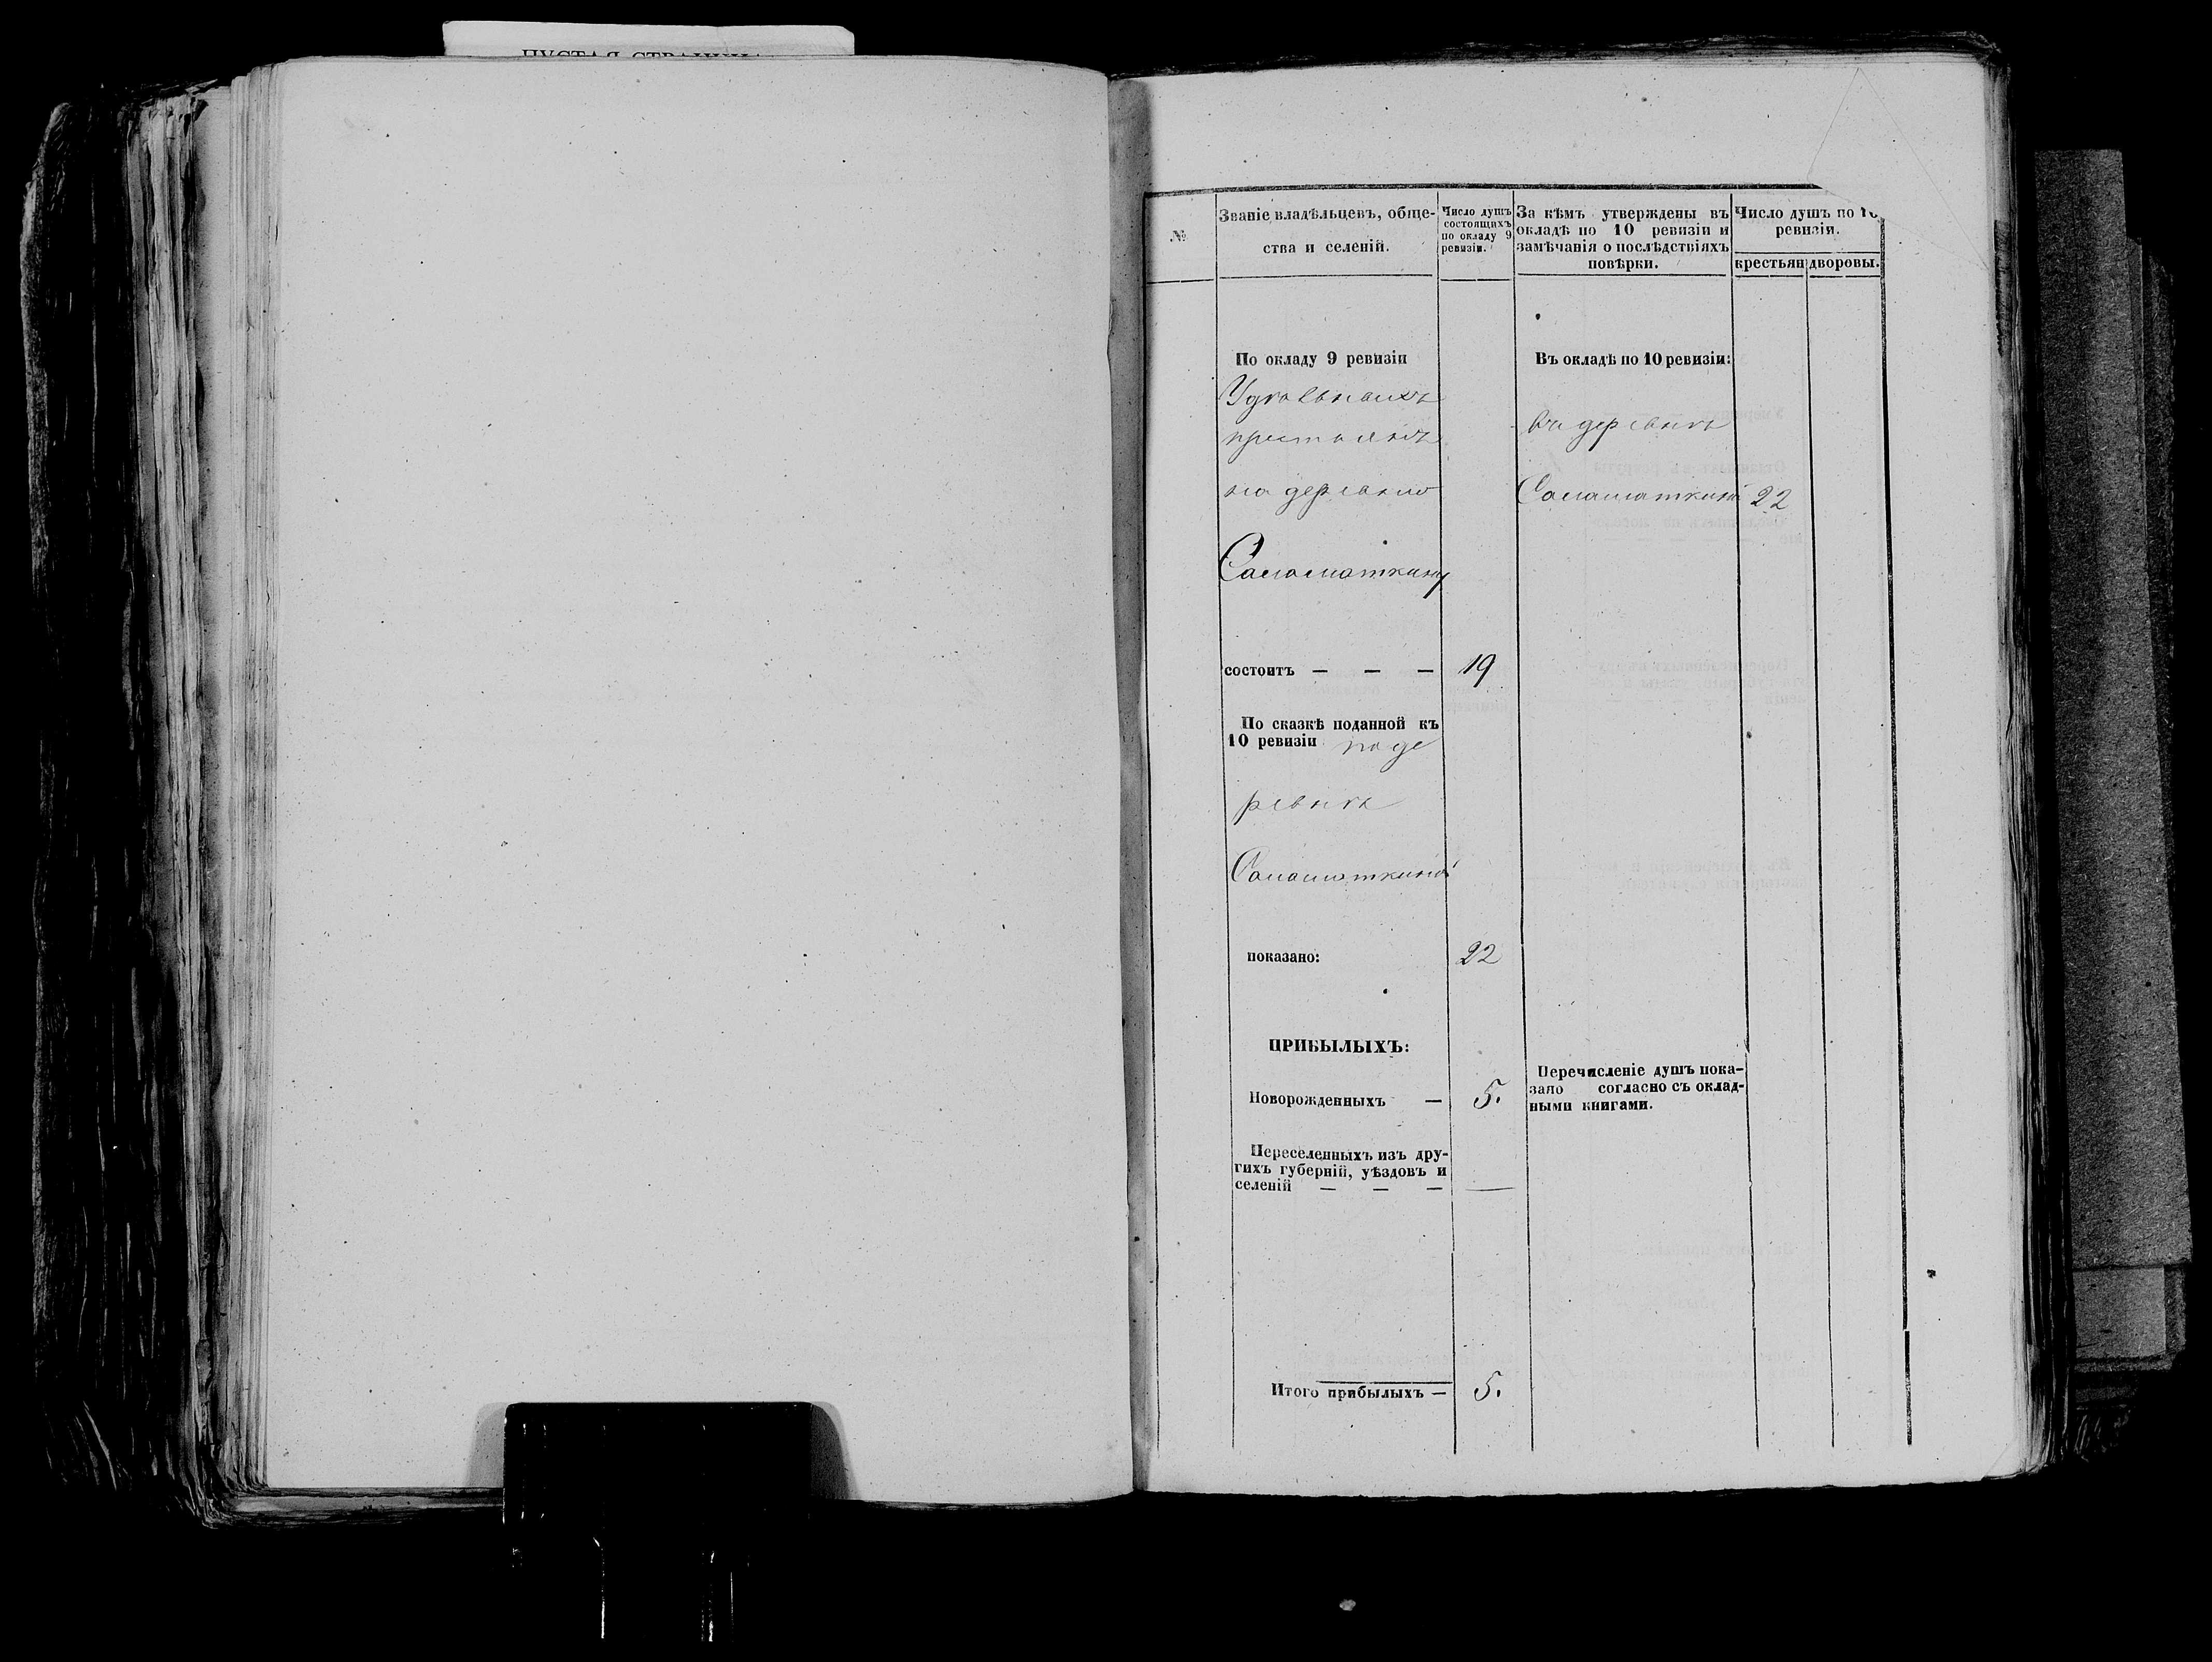 ПУСТАЯ СТРАНИЦА
№
Званіе владѣльцевъ, обще-
ства и селеній.
Число душъ
состоящихъ
по окладу 9
ревизіи.
За кѣмъ утверждены въ
окладѣ по 10 ревизіи и
замѣчанія о послѣдствіяхъ
повѣрки.
Число душъ по 10
ревизіи.
крестьян
дворовы.
По окладу 9 ревизіи
Удѣльныхъ
крестьянъ
на деревню
Саламаткину
состоитъ — — — 19
По сказкѣ поданной къ
10 ревизіи по де
ревнѣ
Саламаткиной
показано: 22
ПРИБЫЛЫХЪ:
Новорожденныхъ — 5.
Переселенныхъ изъ дру-
гихъ губерній, уѣздовъ и
селеній — — — —
Итого прибылыхъ — 5.
Въ окладѣ по 10 ревизіи:
въ деревнѣ
Саламаткиной 22
Перечисленіе душъ пока-
зано согласно съ оклад-
ными книгами.